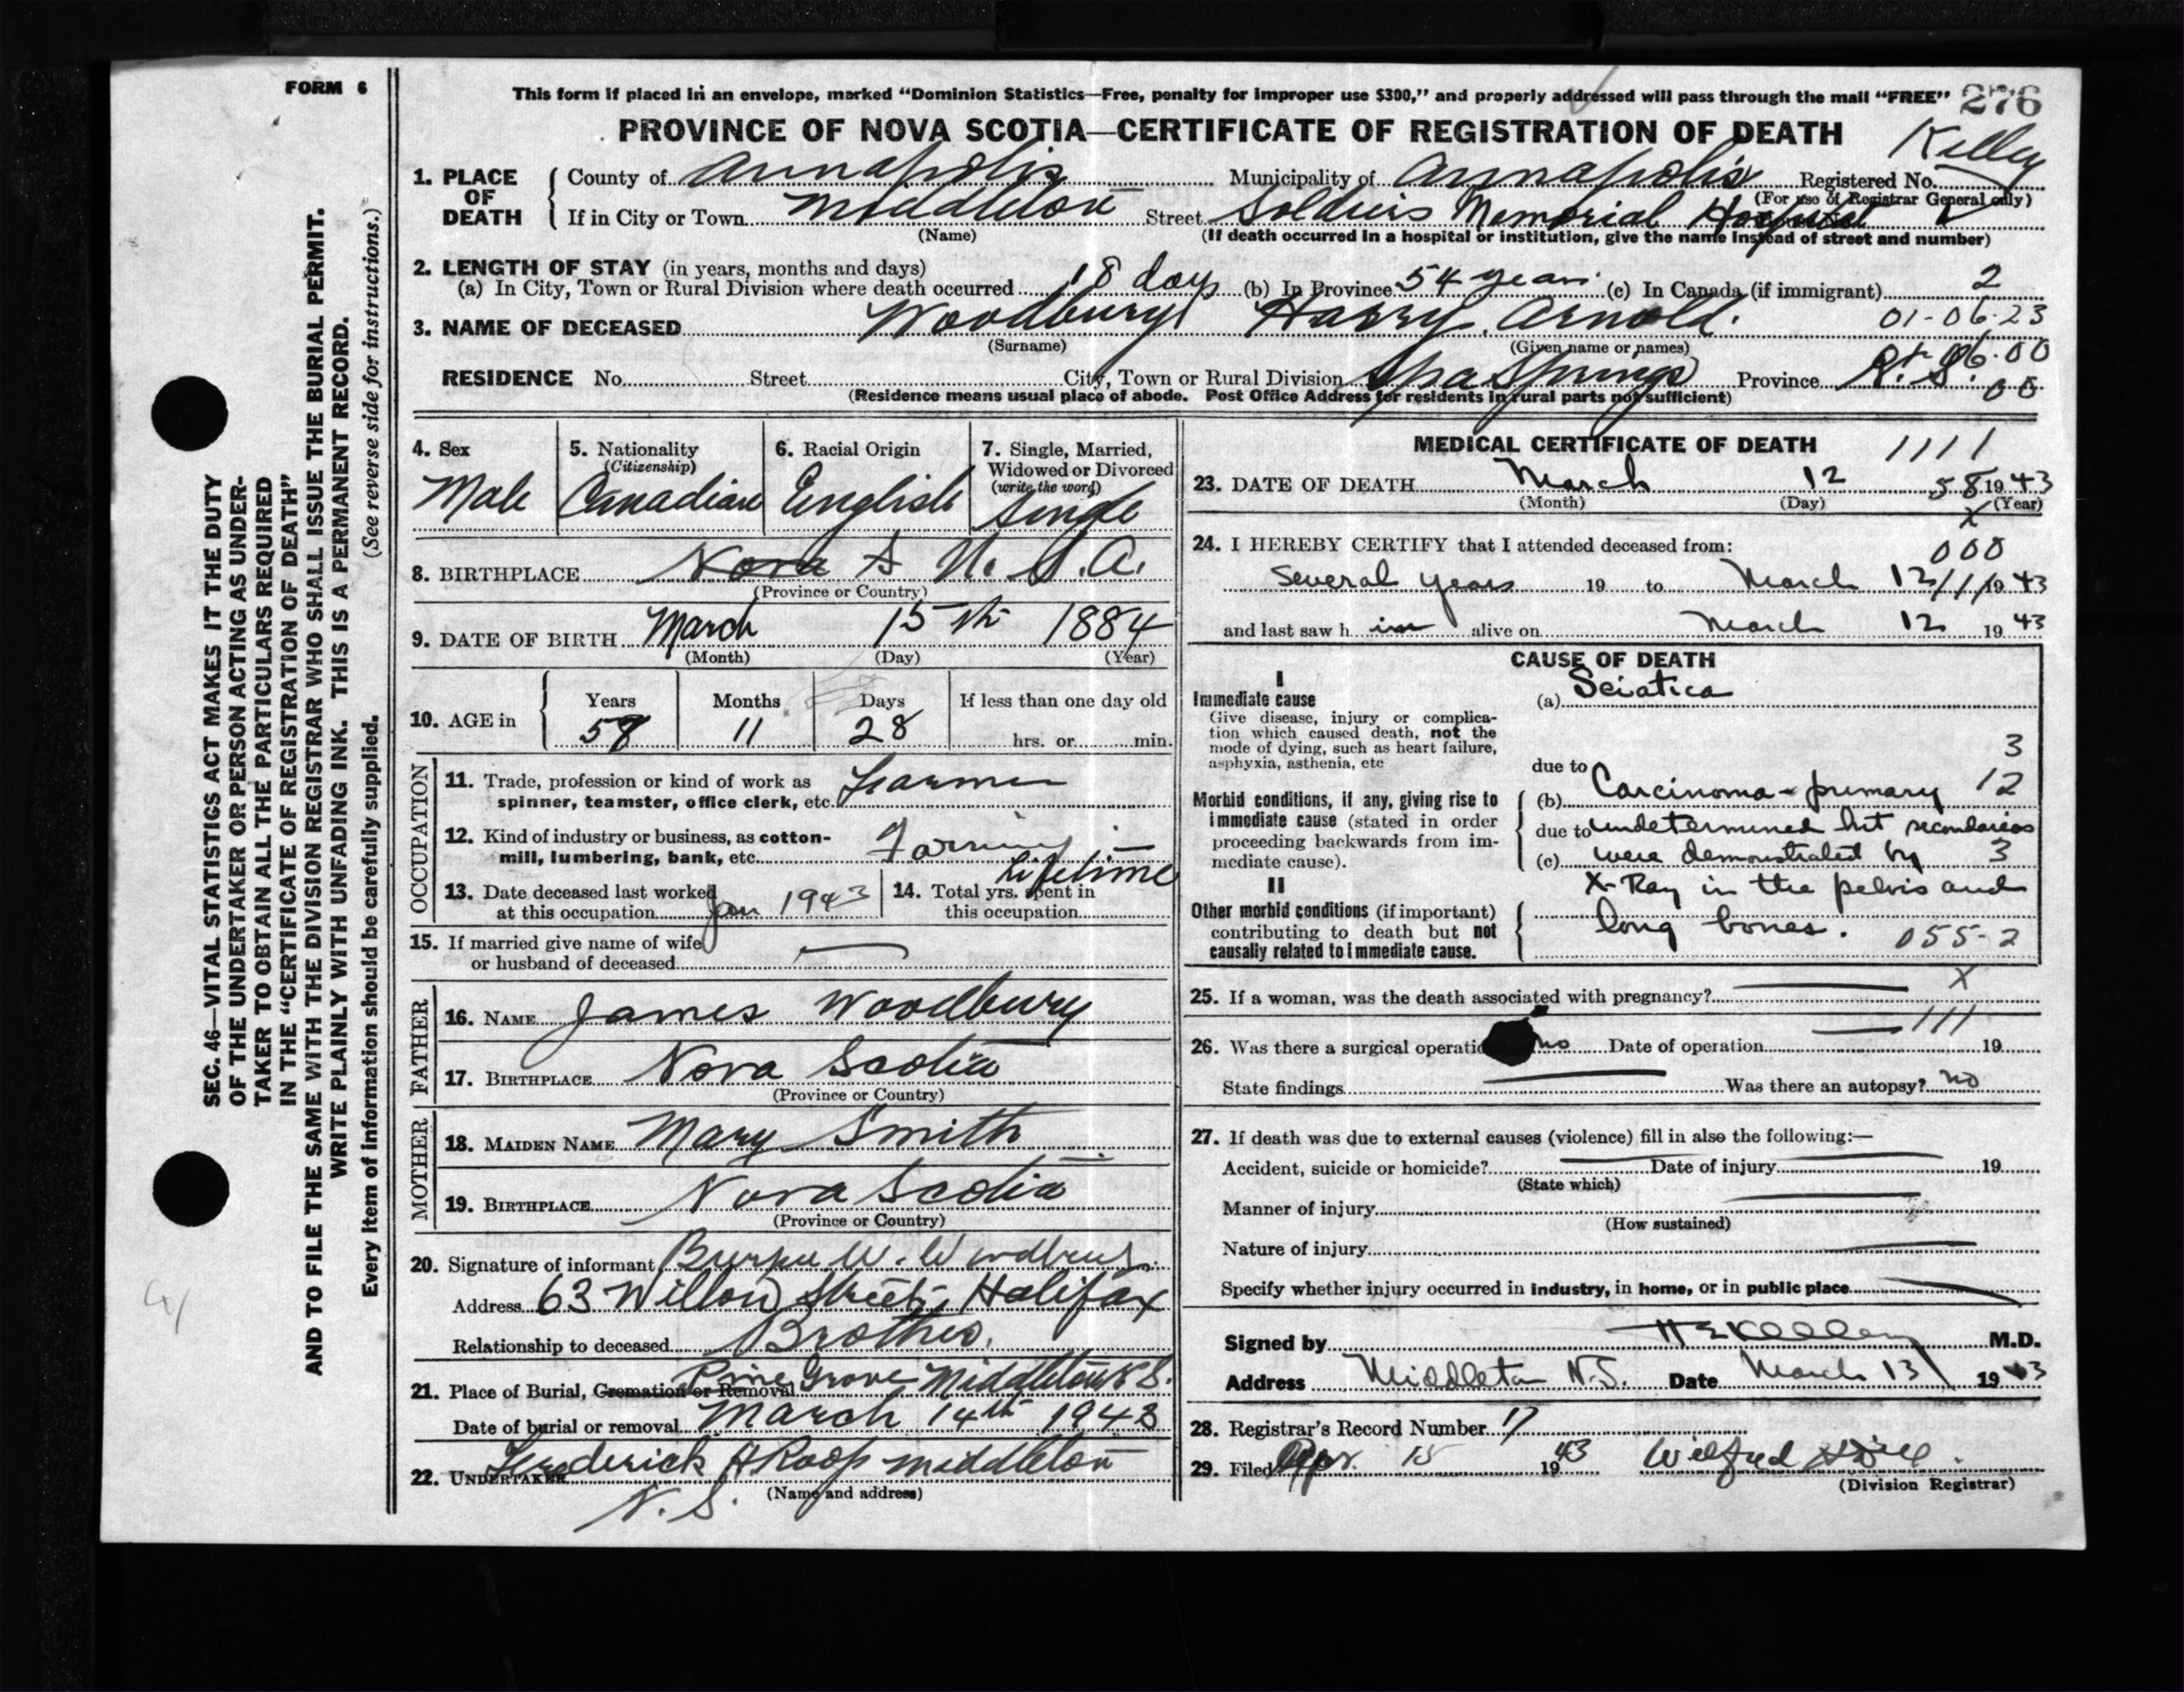 FORM 6
This form if placed in an envelope, marked “Dominion Statistics—Free, penalty for improper use $300,” and properly addressed will pass through the mail “FREE” 276
PROVINCE OF NOVA SCOTIA—CERTIFICATE OF REGISTRATION OF DEATH
Kelley
1. PLACE OF DEATH
County of Annapolis Municipality of Annapolis Registered No.
(For use of Registrar General only)
If in City or Town Middleton Street Soldiers Memorial Hospital
(Name) (If death occurred in a hospital or institution, give the name instead of street and number)
2. LENGTH OF STAY (in years, months and days)
(a) In City, Town or Rural Division where death occurred 18 days (b) In Province 54 years (c) In Canada (if immigrant) 2
3. NAME OF DECEASED Woodbury Harry Arnold. 01-06-23
(Surname) (Given name or names)
RESIDENCE No. Street City, Town or Rural Division Spa Springs Province N.S. 06.00
00
(Residence means usual place of abode. Post Office Address for residents in rural parts not sufficient)
4. Sex Male
5. Nationality (Citizenship) Canadian
6. Racial Origin English
7. Single, Married, Widowed or Divorced (write the word) Single
8. BIRTHPLACE Nova S U.S.A.
(Province or Country)
9. DATE OF BIRTH March 15th 1884
(Month) (Day) (Year)
10. AGE in Years 58 Months 11 Days 28 If less than one day old hrs. or min.
OCCUPATION
11. Trade, profession or kind of work as spinner, teamster, office clerk, etc. Farmer
12. Kind of industry or business, as cotton-mill, lumbering, bank, etc. Farming
13. Date deceased last worked at this occupation Jan 1943
14. Total yrs. spent in this occupation Lifetime
15. If married give name of wife or husband of deceased —
FATHER
16. NAME James Woodbury
17. BIRTHPLACE Nova Scotia
(Province or Country)
MOTHER
18. MAIDEN NAME Mary Smith
19. BIRTHPLACE Nova Scotia
(Province or Country)
20. Signature of informant W. Woodbury
Address 63 Willow Street, Halifax
Relationship to deceased Brother.
21. Place of Burial, Cremation or Removal Pine Grove Middleton N.S.
Date of burial or removal March 14th 1943
22. UNDERTAKER Frederick A Roop Middleton
N.S. (Name and address)
MEDICAL CERTIFICATE OF DEATH 1111
23. DATE OF DEATH March 12 58 1943
(Month) (Day) (Year)
x
24. I HEREBY CERTIFY that I attended deceased from: 000
Several years 19 to March 12 1943
and last saw h im alive on March 12 1943
CAUSE OF DEATH
I
Immediate cause (a) Sciatica
Give disease, injury or complication which caused death, not the mode of dying, such as heart failure, asphyxia, asthenia, etc
3
due to
Morbid conditions, if any, giving rise to immediate cause (stated in order proceeding backwards from immediate cause).
(b) Carcinoma - primary 12
due to undetermined but secondaries
(c) were demonstrated by 3
X-Ray in the pelvis and
long bones. 055-2
II
Other morbid conditions (if important) contributing to death but not causally related to immediate cause.
25. If a woman, was the death associated with pregnancy? — X
26. Was there a surgical operation no Date of operation — 111 19
State findings — Was there an autopsy? no
27. If death was due to external causes (violence) fill in also the following:—
Accident, suicide or homicide? — Date of injury — 19
(State which)
Manner of injury —
(How sustained)
Nature of injury —
Specify whether injury occurred in industry, in home, or in public place —
Signed by H E Kelley M.D.
Address Middleton N.S. Date March 13 1943
28. Registrar’s Record Number 17
29. Filed Apr. 15 1943 Wilfred
(Division Registrar)
SEC. 46—VITAL STATISTICS ACT MAKES IT THE DUTY
OF THE UNDERTAKER OR PERSON ACTING AS UNDER-
TAKER TO OBTAIN ALL THE PARTICULARS REQUIRED
IN THE “CERTIFICATE OF REGISTRATION OF DEATH”
AND TO FILE THE SAME WITH THE DIVISION REGISTRAR WHO SHALL ISSUE THE BURIAL PERMIT.
WRITE PLAINLY WITH UNFADING INK. THIS IS A PERMANENT RECORD.
Every item of information should be carefully supplied. (See reverse side for instructions.)